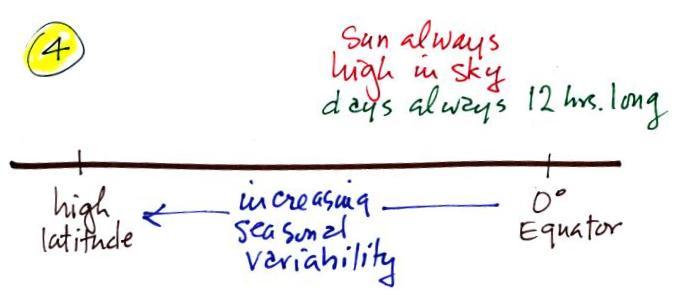 4
Sun always
high in sky
days always 12 hrs. long
high
latitude
increasing
seasonal
variability
0°
Equator